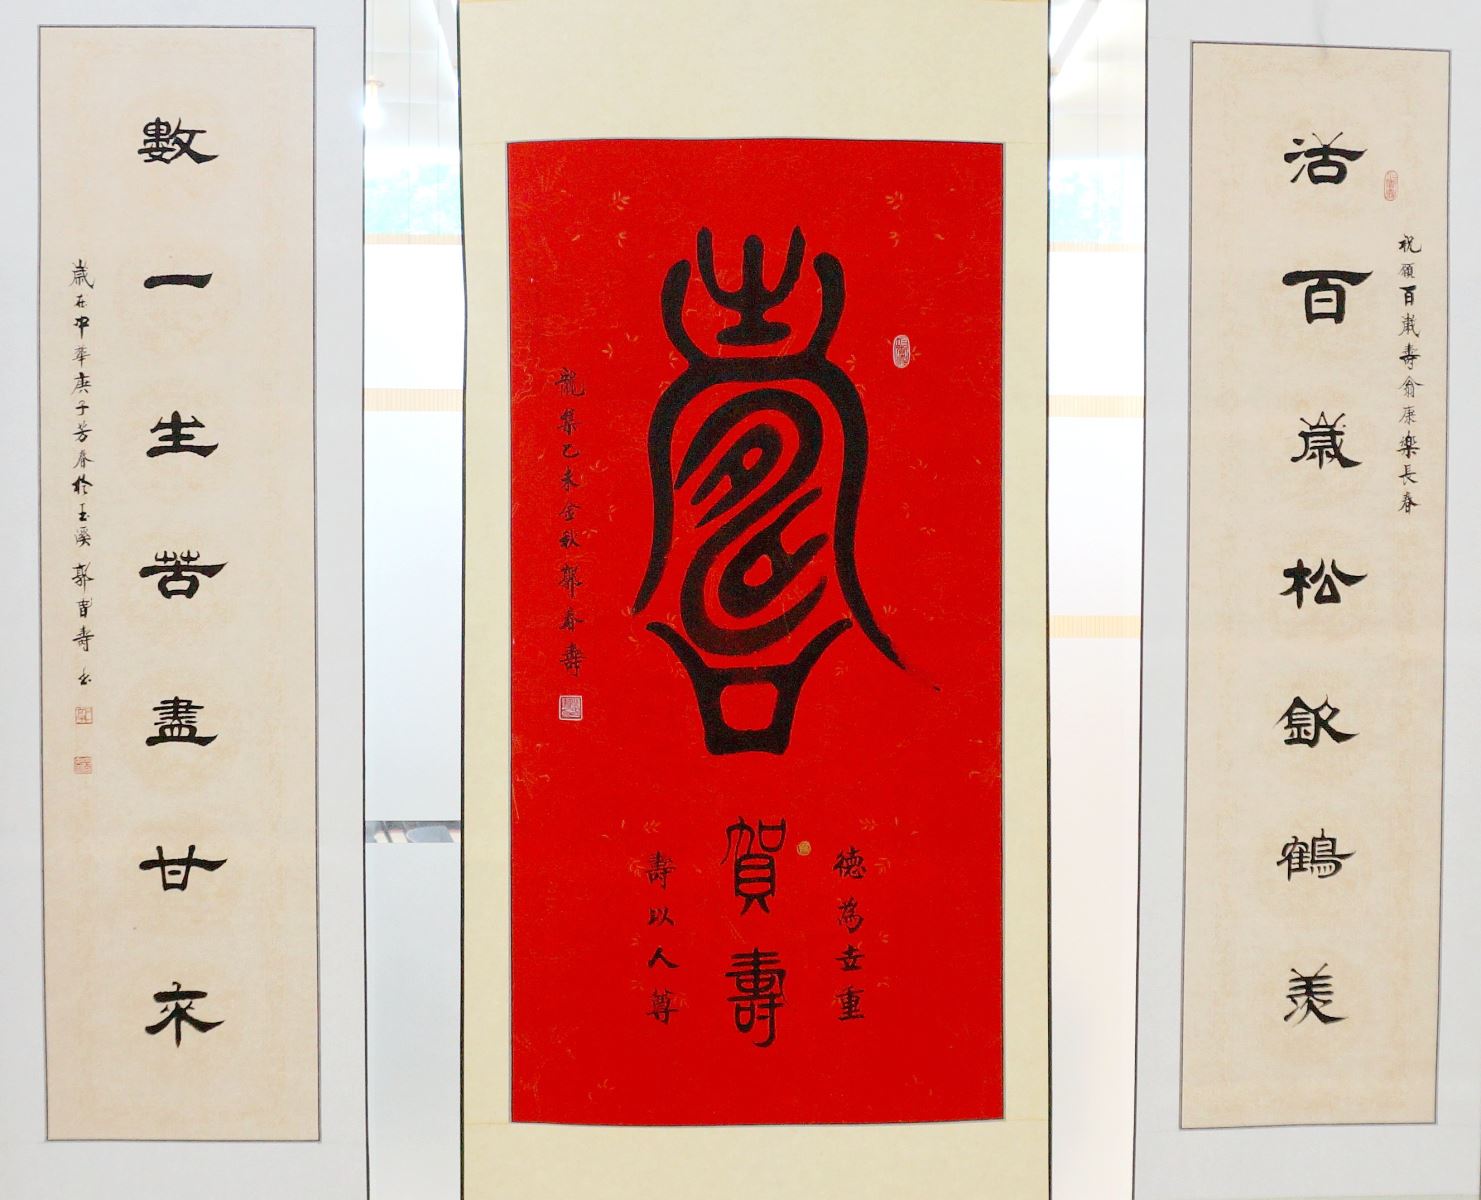 祝願百歲壽翁康樂長春
活百歲松欽鶴羨
壽
德為世重
賀壽
壽以人尊
龍集乙未金秋郭春壽
數一生苦盡甘來
歲在中華庚子芳春於玉溪郭春壽書